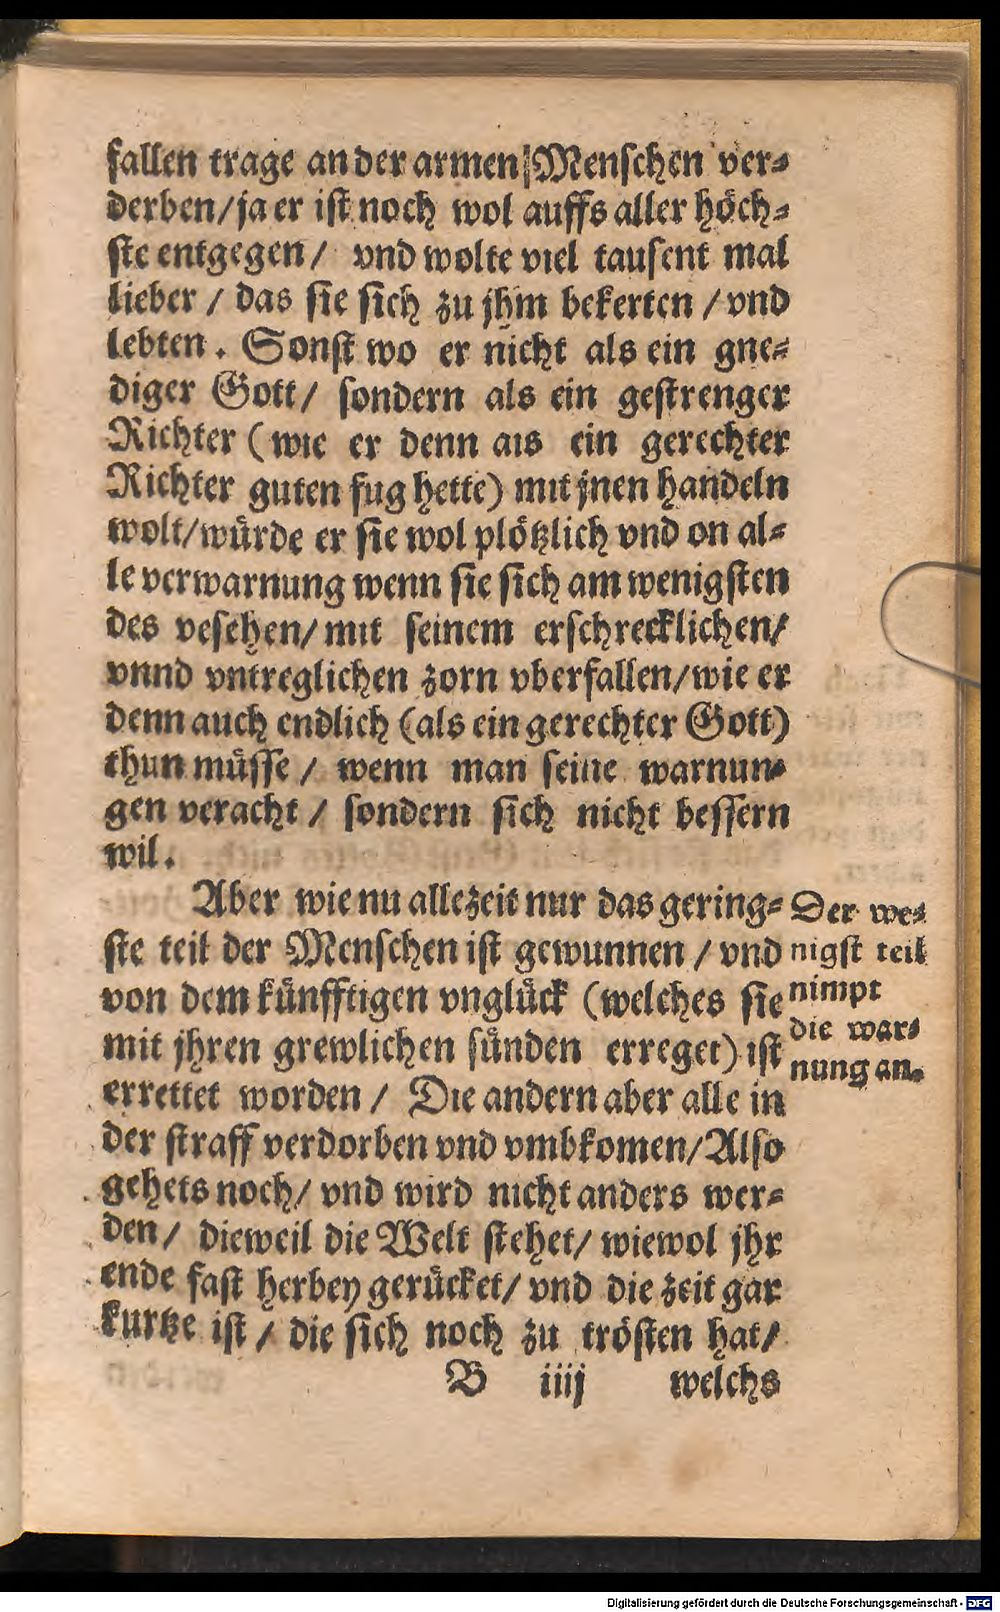 fallen trage an der armen Menschen ver⸗
derben/ja er ist noch wol auffs aller höch⸗
ste entgegen / vnd wolte viel tausent mal
lieber / das sie sich zu jhm bekerten / vnd
lebten. Sonst wo er nicht als ein gne⸗
diger Gott/ sondern als ein gestrenger
Richter (wie er denn als ein gerechter
Richter guten fug hette) mit jnen handeln
wolt/würde er sie wol plötzlich vnd on al⸗
le verwarnung wenn sie sich am wenigsten
des vesehen/ mit seinem erschrecklichen/
vnnd vntreglichen zorn vberfallen/wie er
denn auch endlich (als ein gerechter Gott)
thun müsse / wenn man seine warnun⸗
gen veracht / sondern sich nicht bessern
wil.
Aber wie nu allezeit nur das gering⸗
ste teil der Menschen ist gewunnen / vnd
von dem künfftigen vnglück (welches sie
mit jhren grewlichen sünden erreget) ist
errettet worden / Die andern aber alle in
der straff verdorben vnd vmbkomen/Also
gehets noch/ vnd wird nicht anders wer⸗
den/ dieweil die Welt stehet/ wiewol jhr
ende fast herbey gerücket/ vnd die zeit gar
kurtze ist / die sich noch zu trösten hat/
B iiij welchs
Der we⸗
nigst teil
nimpt
die war⸗
nung an.
Digitalisierung gefördert durch die Deutsche Forschungsgemeinschaft - DFG